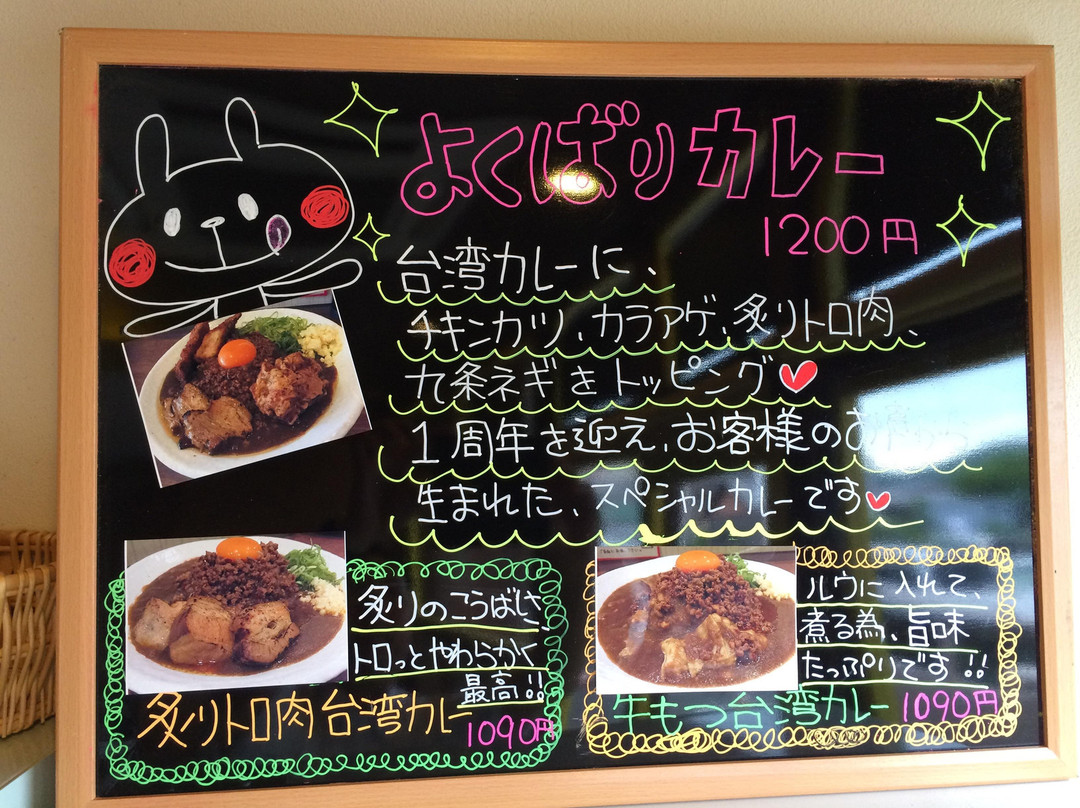 よくばりカレー
1200円
台湾カレーに、
チキンカツ、カラアゲ、炙りトロ肉、
九条ネギをトッピング
1周年を迎え、お客様のお
生まれた、スペシャルカレーです
炙りのこうばしさ
トロっとやわらかく
最高!!
炙りトロ肉台湾カレー
1090円
ルウに入れて、
煮る為、旨味
たっぷりです!!
牛もつ台湾カレー 1090円